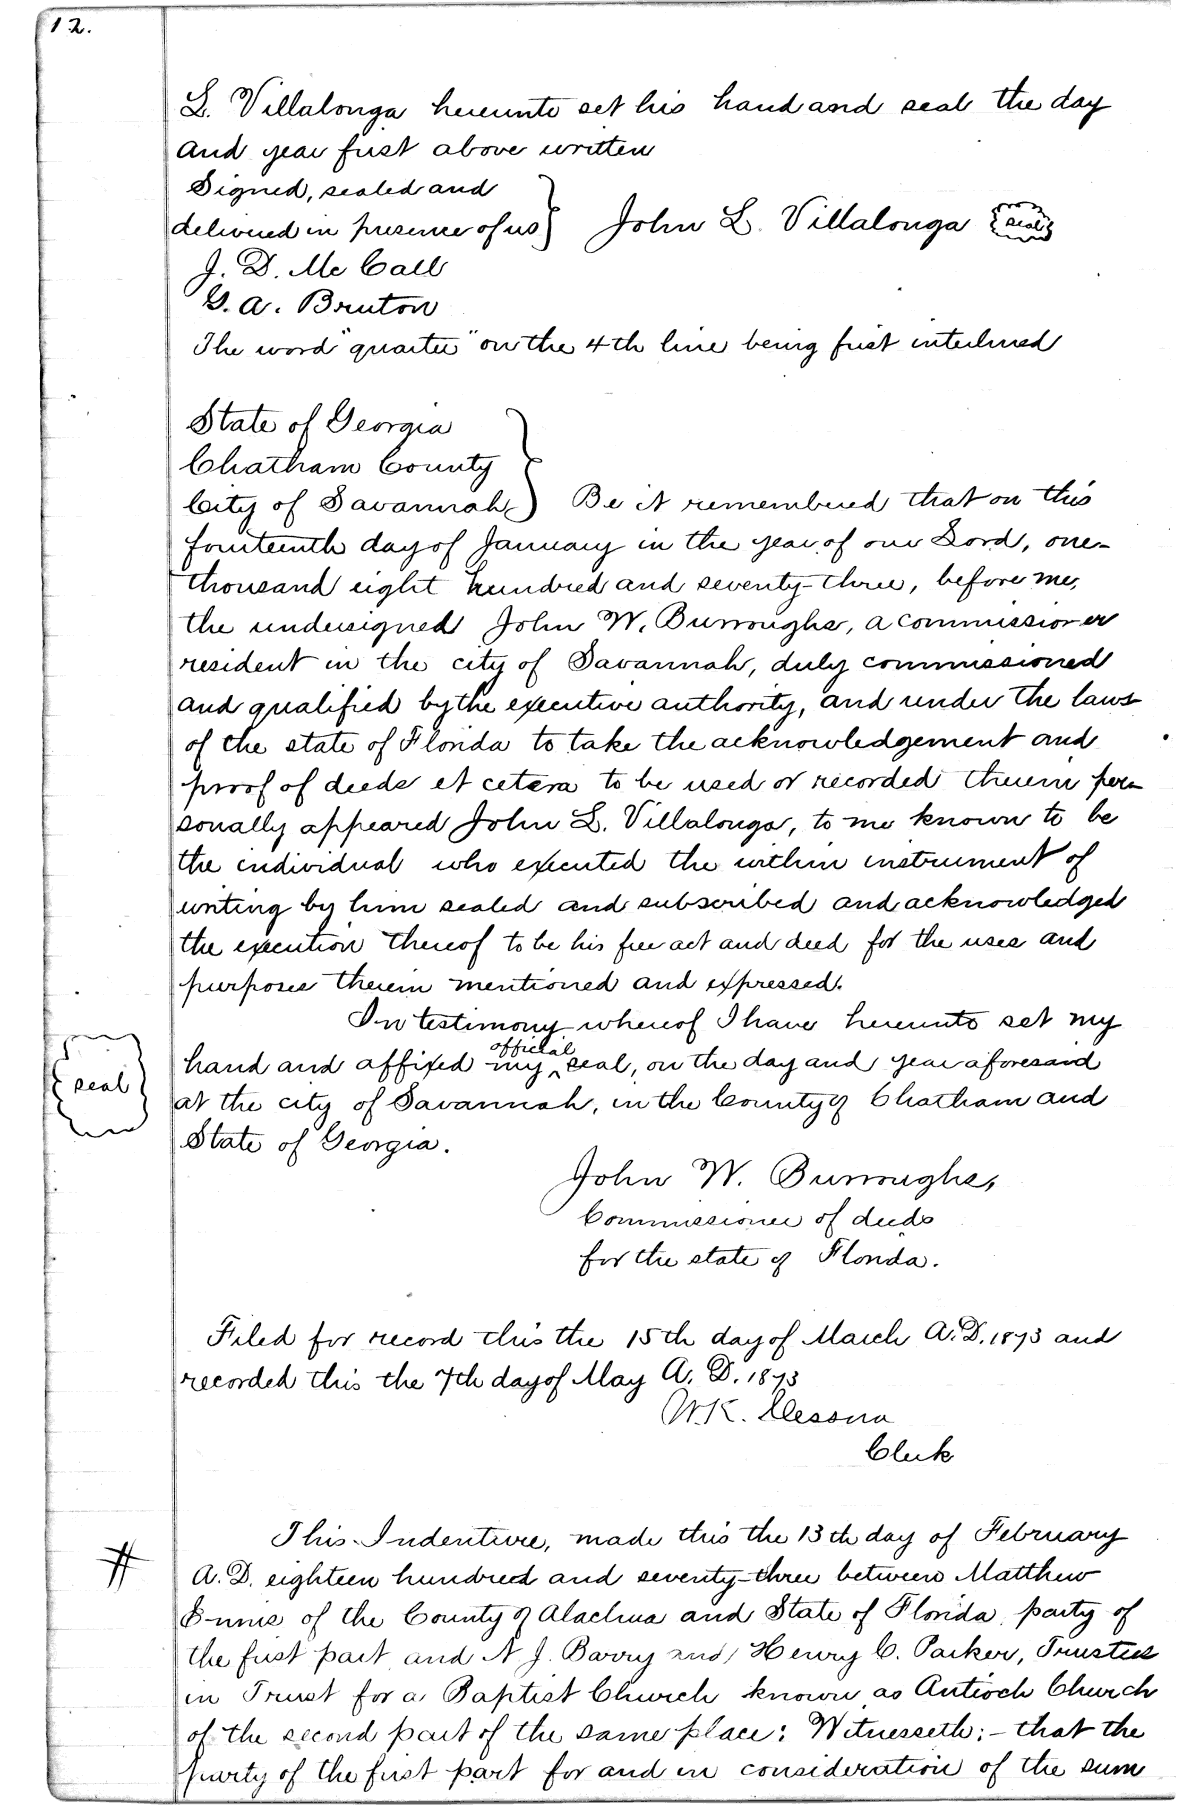 12.
L. Villalonga hereunto set his hand and seal the day
and year first above written
Signed, sealed and
delivered in presence of us } John L. Villalonga seal
J. D. Mc Call
G. A. Bruton
The word "quarter" on the 4th line being first interlined
State of Georgia
Chatham County
City of Savannah } Be it remembered that on this
fourteenth day of January in the year of our Lord, one-
thousand eight hundred and seventy-three, before me,
the undersigned John W. Burroughs, a commissioner
resident in the city of Savannah, duly commissioned
and qualified by the executive authority, and under the laws
of the state of Florida to take the acknowledgement and
proof of deeds et cetera to be used or recorded therein per-
sonally appeared John L. Villalonga, to me known to be
the individual who executed the within instrument of
writing by him sealed and subscribed and acknowledged
the execution thereof to be his free act and deed for the uses and
purposes therein mentioned and expressed.
In testimony whereof I have hereunto set my
hand and affixed my official seal, on the day and year aforesaid
seal
at the city of Savannah, in the County of Chatham and
State of Georgia.
John W. Burroughs,
Commissioner of deeds
for the state of Florida.
Filed for record this the 15th day of March A.D. 1873 and
recorded this the 7th day of May A. D. 1873
W. K. Cessna
Clerk
#
This Indenture, made this the 13th day of February
A. D. eighteen hundred and seventy-three between Matthew
Ennis of the County of Alachua and State of Florida party of
the first part and N J. Barry and Henry C. Parker, Trustees
in Trust for a Baptist Church known as Antioch Church
of the second part of the same place: Witnesseth:- that the
party of the first part for and in consideration of the sum